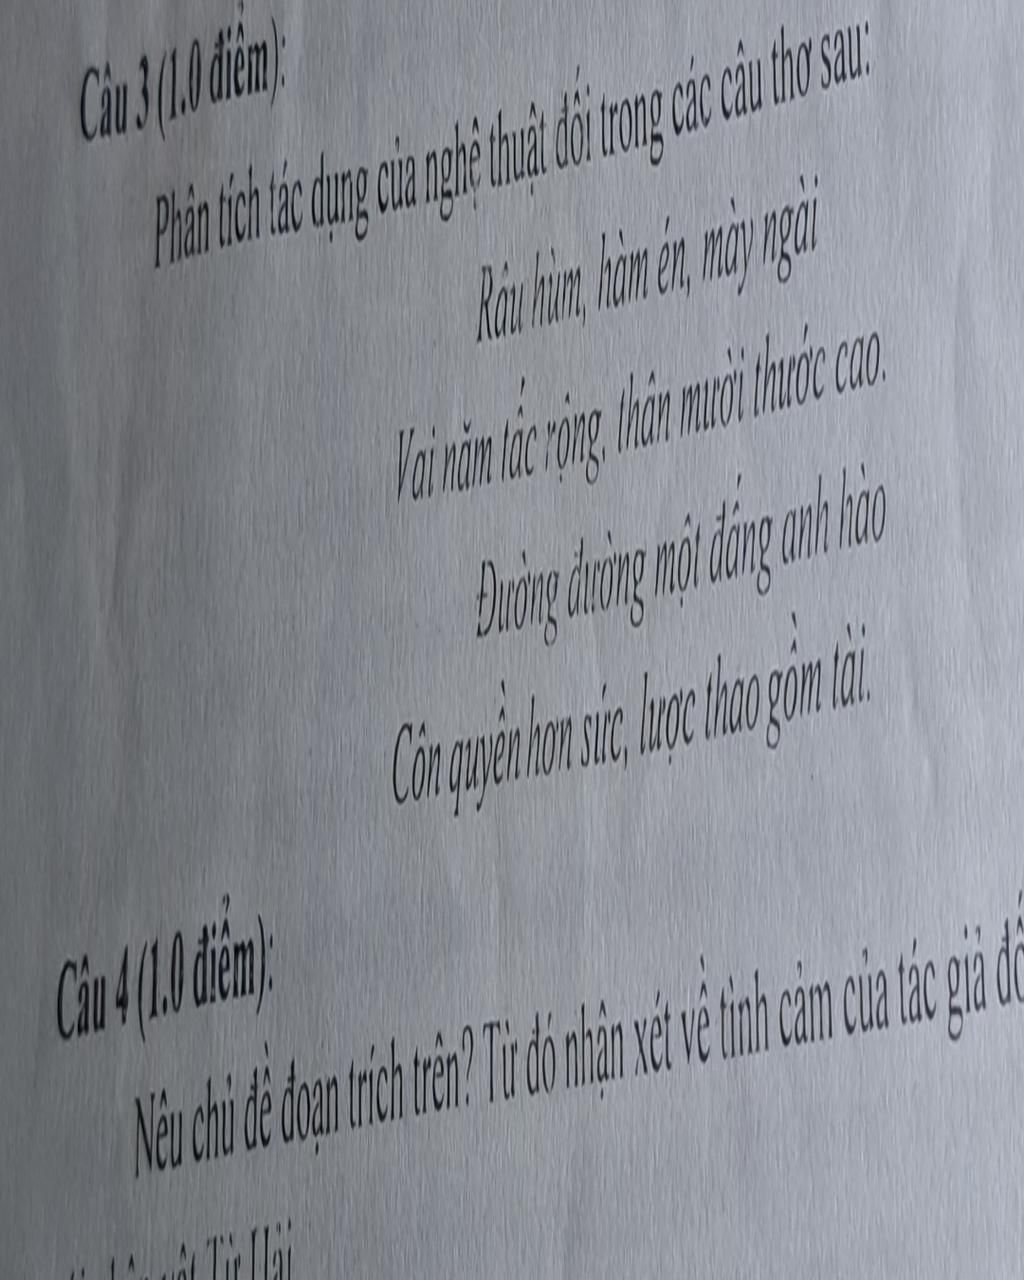 Câu 3 (1.0 điểm):
Phân tích tác dụng của nghệ thuật đối trong các câu thơ sau:
Râu hùm, hàm én, mày ngài
Vai năm tấc rộng, thân mười thước cao.
Đường đường một đấng anh hào
Côn quyền hơn sức, lược thao gồm tài.
Câu 4 (1.0 điểm):
Nêu chủ đề đoạn trích trên? Từ đó nhận xét về tình cảm của tác giả
Từ Hải